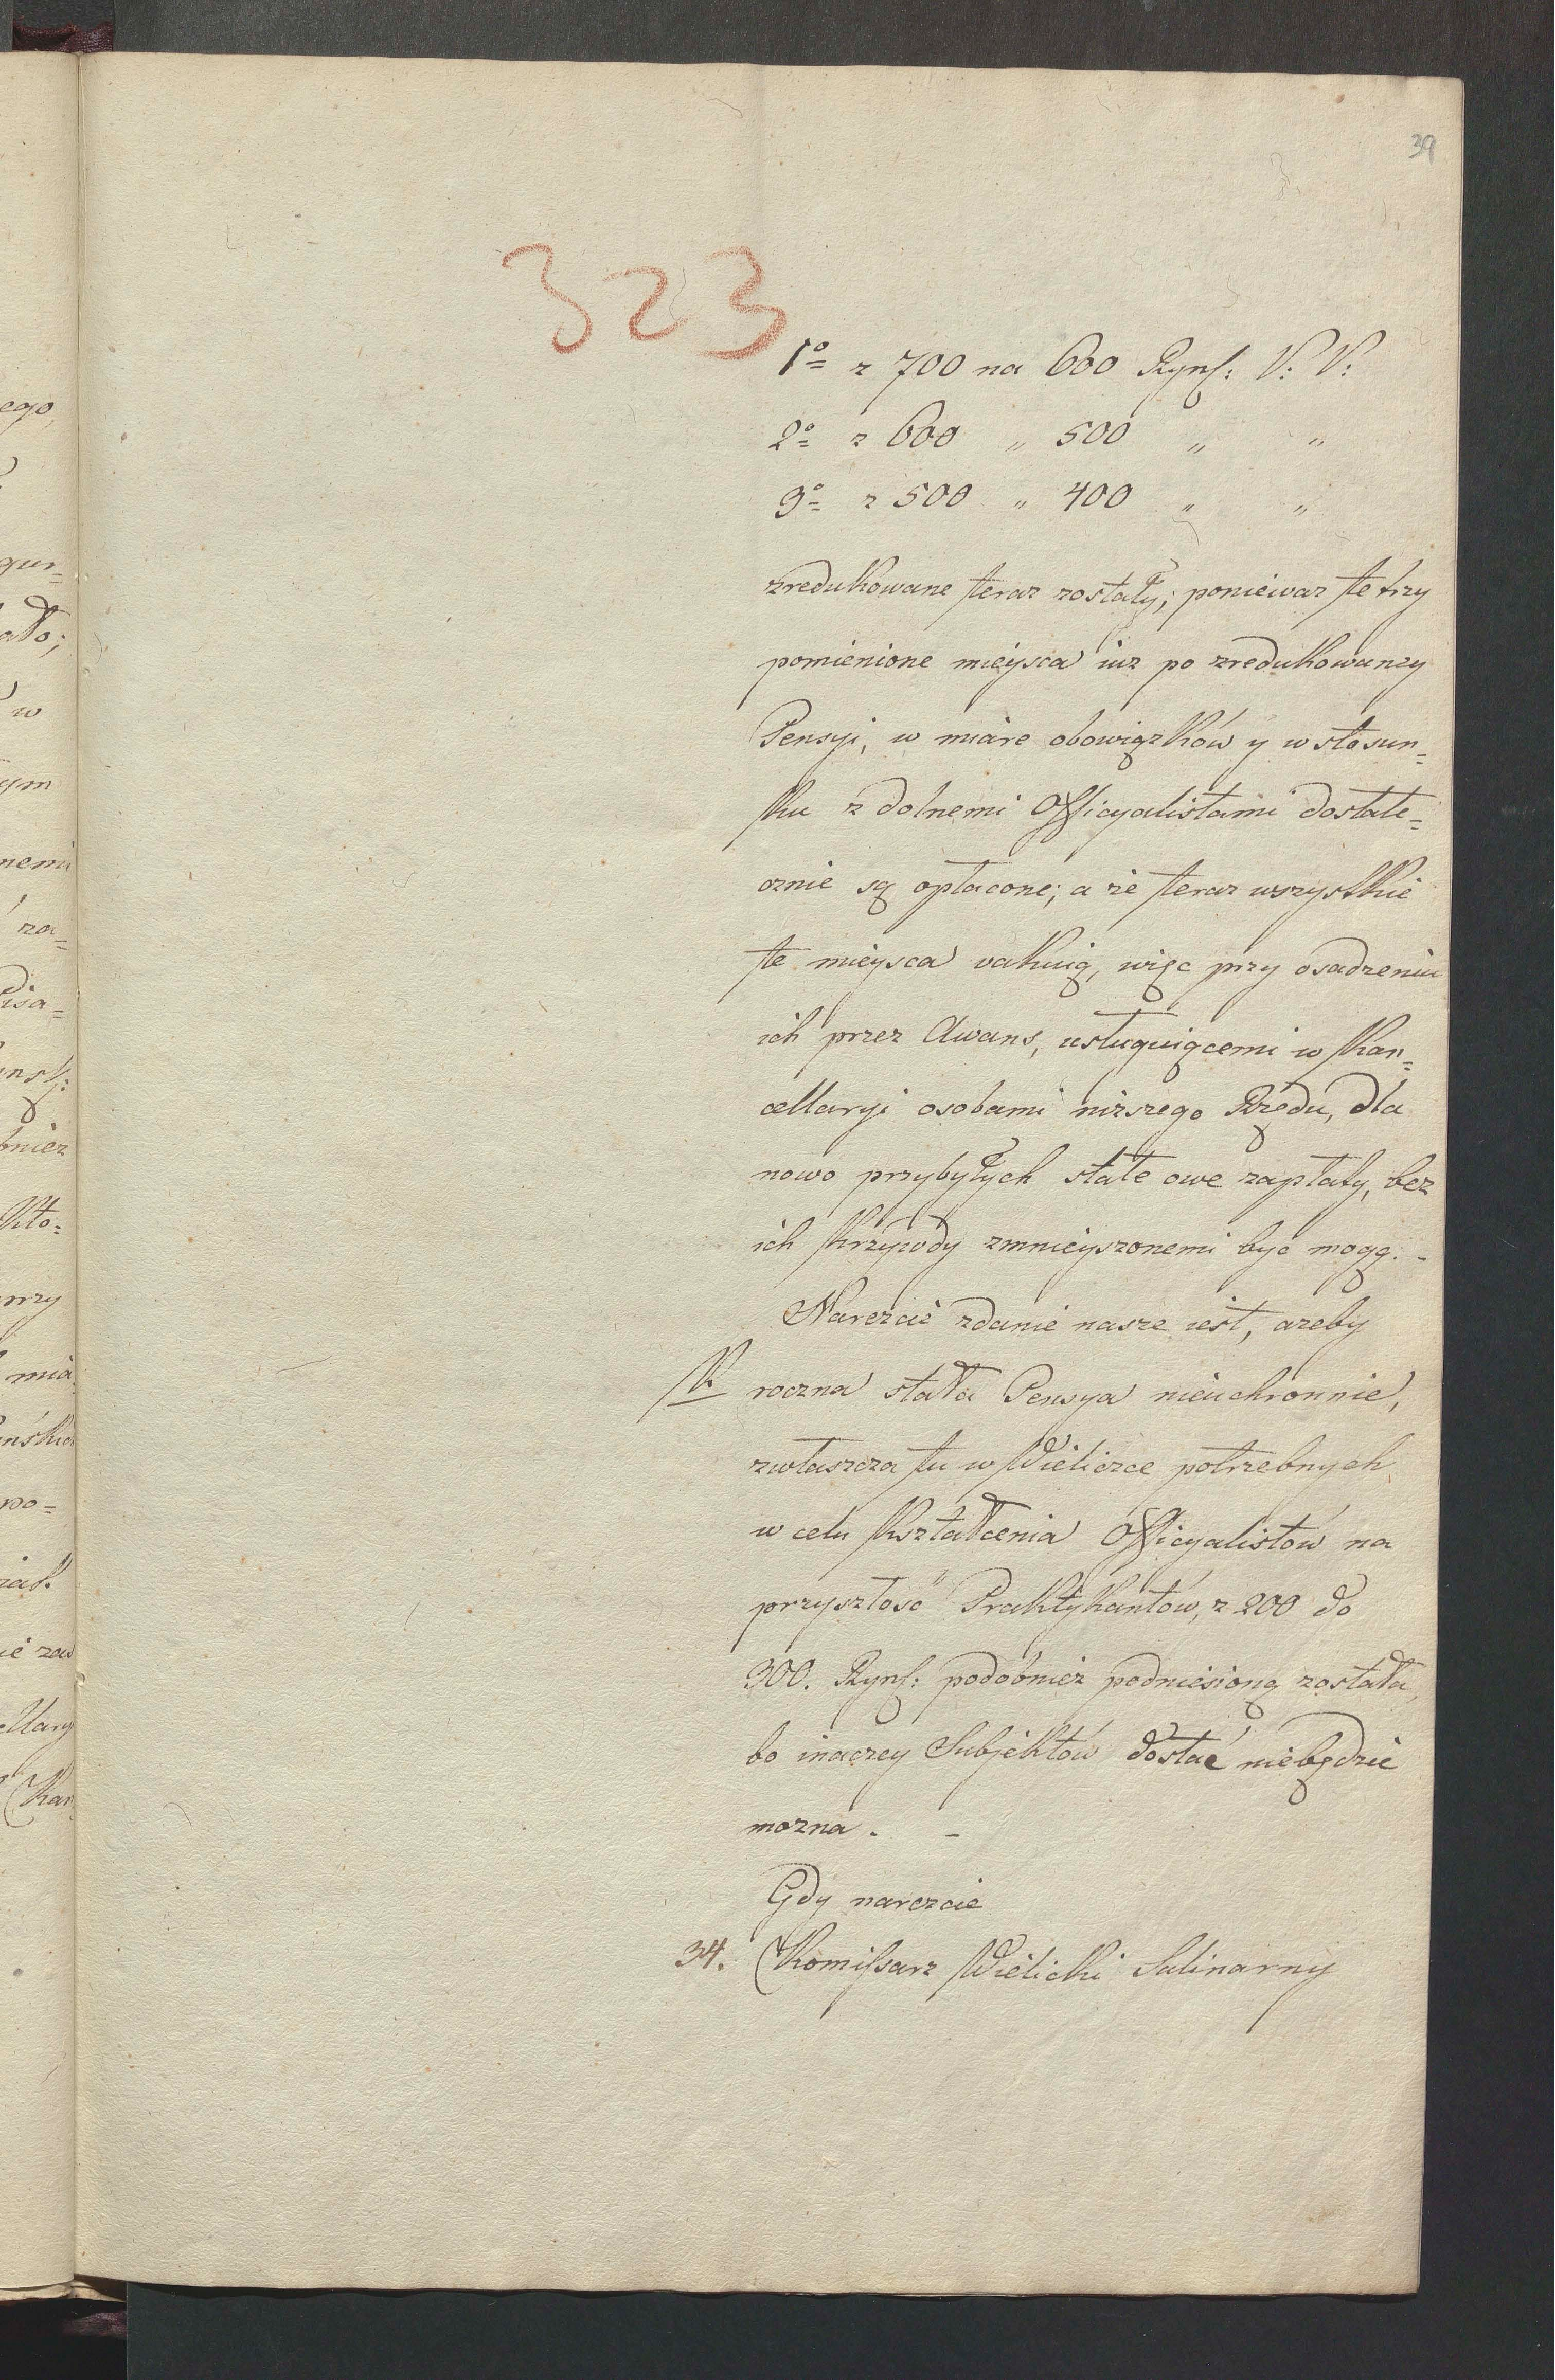 39
323
1º z 700 na 600 Rynſ: V: V:
2º z 600 „ 500 „ „
3º z 500 „ 400 „ „
zredukowane teraz zostały; ponieważ te trzy
pomienione mieysca iuz po zredukowaney
Pensyi, w miare obowiązków y w stosun=
ku z dolnemi Officyalistami dostate=
cznie są opłacone; a że teraz wszystkie
te mieysca vakuią, więc przy osadzeniu
ich przez Awans, usługuiącemi w Kan=
cellaryi osobami niższego Rzędu, dla
nowo przybyłych stałe owe zapłaty, bez
ich krzywdy zmnieyszonemi być mogą. -
Nareżcie zdanie nasze iest, azeby
roczna stała Pensya nieuchronnie,
zwłaszcza tu w Wieliczce potrzebnych
w celu kształcenia Officyalistów na
przyszłość Praktykantów, z 200 do
300. Rynſ: podobnież podniesioną została,
bo inaczey Subjektów dostać niebędzie
mozna. -
Gdy nareżcie
34. Komiſsarz Wielicki Salinarny
ego
ato;
w
ym
nemi
za=
bnież
Kto=
przy
mia
wo=
Kan